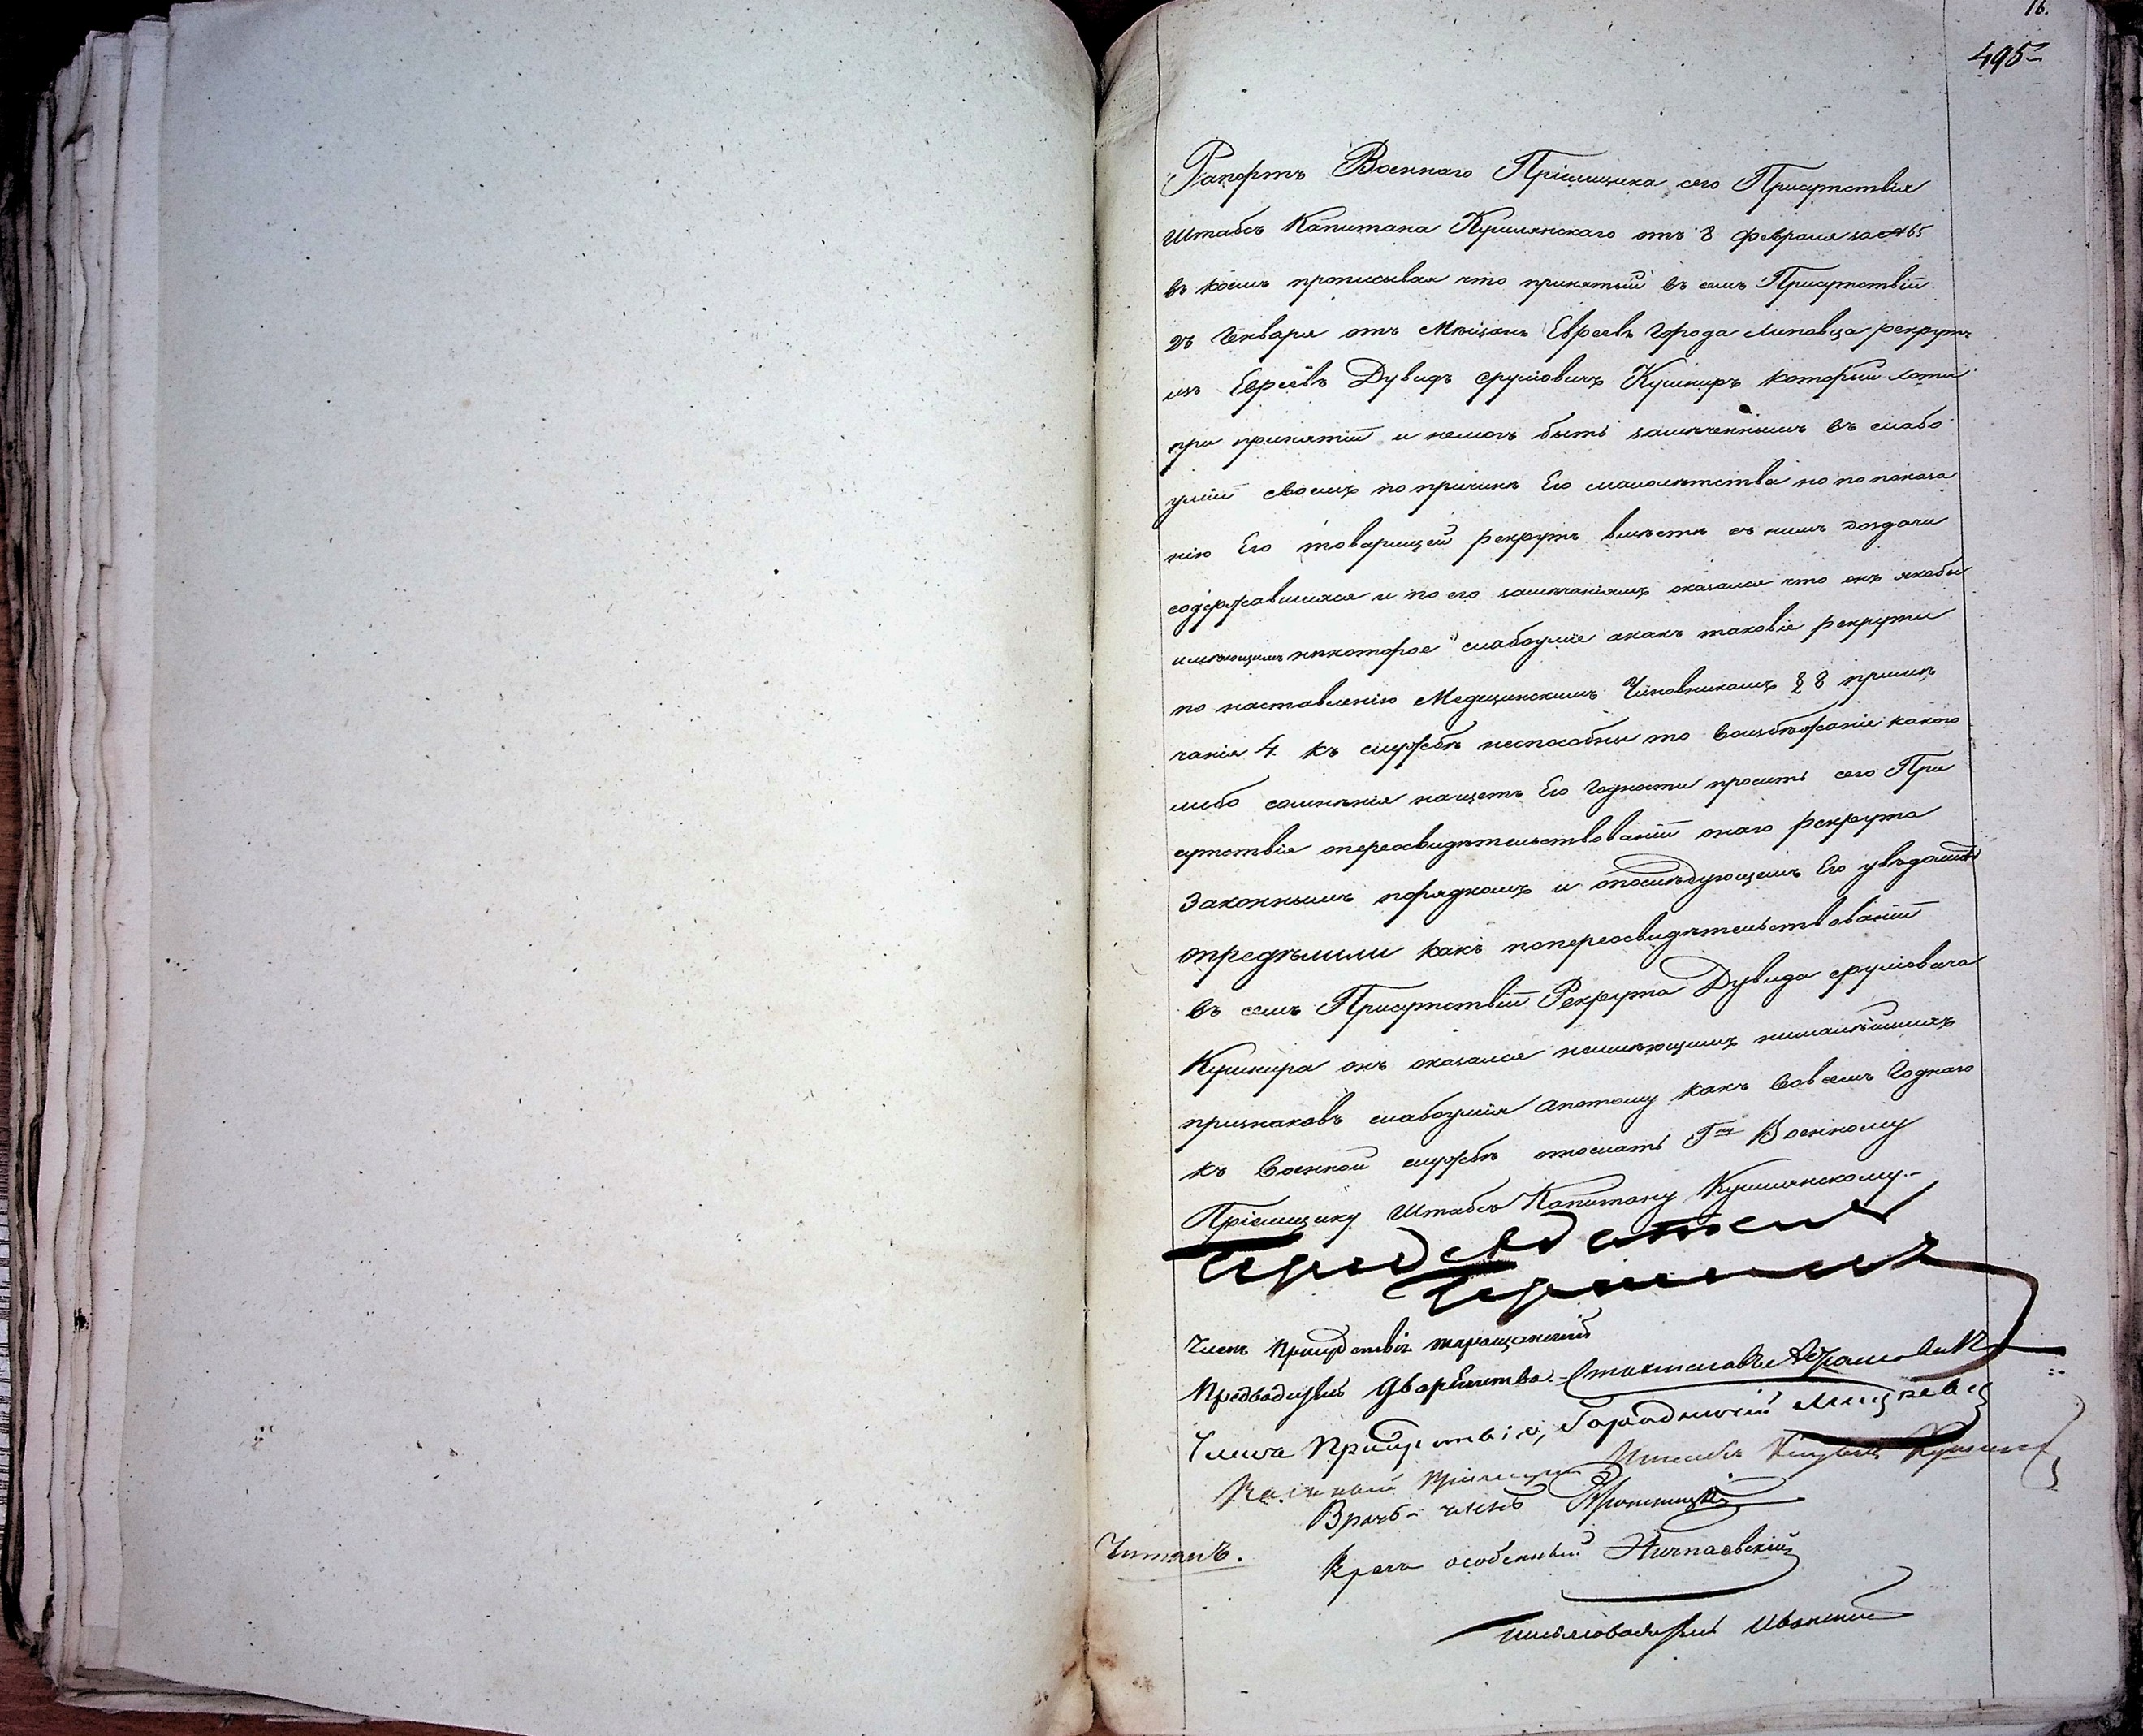 16.
495
Рапортъ Военнаго Пріемщика сего Присутствія
Штабсъ Капитана Кушлянскаго отъ 8 февраля за № 65
въ коемъ прописывая что принятый въ семъ Присутствіи
генваря отъ Мѣщанъ Евреевъ города Липовца рекрутъ
изъ Евреевъ Дувидъ Сруліовичъ Кушниръ который хотя
при принятіи и немогъ быть замѣченнымъ въ слабо
уміи своемъ по причинѣ Его малолѣтства но по показа
нію Его товарищей рекрутъ вмѣстѣ съ нимъ до здачи
содержавшихся и по его замѣчаніямъ оказался что онъ якобы
имѣющимъ нѣкоторое слабоуміе а какъ таковіе рекруты
по наставленію Медецинскимъ Чиновникамъ § 8 примѣ
чанія 4 къ службѣ неспособны то воизбѣжаніе какого
либо сомнѣнія нащетъ Его годности проситъ сего При
сутствія опереосвидѣтельствованіи онаго рекрута
законнымъ порядкомъ и опослѣдующемъ Его увѣдомить
опредѣлили какъ попереосвидѣтельствованіи
въ семъ Присутствіи Рекрута Дувида Сруліовича
Кушнира онъ оказался неимѣющимъ нималѣйшихъ
признаковъ слабоумія а потому какъ совсемъ годнаго
къ Военной службѣ отослать Гну Военному
Пріемщику Штабсъ Капитану Кушлянскому.
Председатель
Членъ Присудствія таращанский
Предводитель Дворянства Станиславъ Абрамовичъ
Членъ Присудствія, Городничій
Военный пріемщикъ Штабсъ Капитанъ
Врачъ - членъ
Читалъ.
Врачъ особенный
письмоводитель